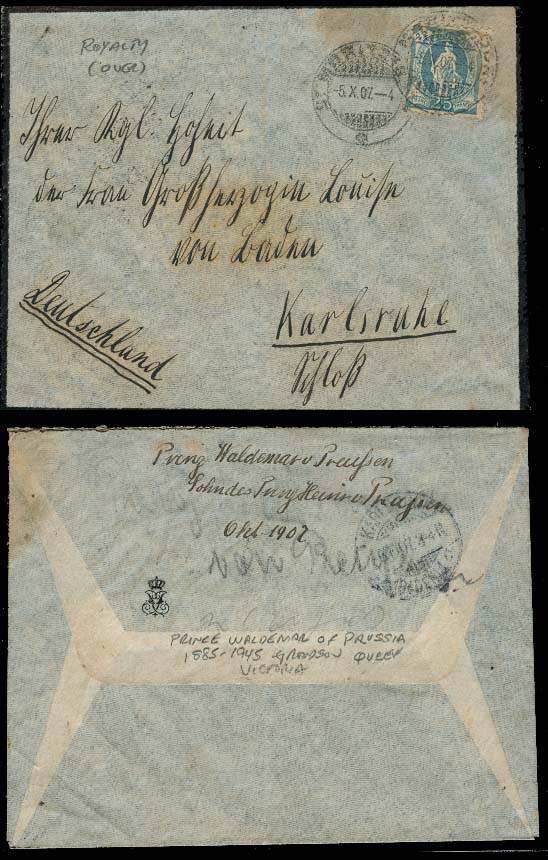 ROYALTY
(OVER)
ST. MORITZ
-5.X.07.-4
25
Ihrer Kgl. Hoheit
der Frau Großherzogin Louise
von Baden
Karlsruhe
Schloß
Deutschland
Prinz Waldemar v Preußen
Sohn des Prinz Heinr v Preußen
Okt. 1907
von
PRINCE WALDEMAR OF PRUSSIA
1885-1945 GRANDSON QUEEN
VICTORIA